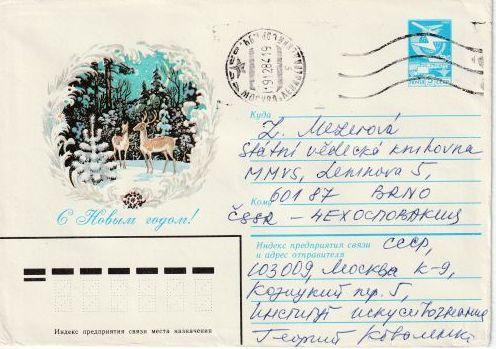 МОСКВА
191284 19
Куда
Z. Mezerová
Státní vědecká knihovna
MMVS, Leninova 5,
601 87 BRNO
Кому
ČSSR - ЧЕХОСЛОВАКИЯ
С Новым годом!
Индекс предприятия связи
и адрес отправителя
СССР,
103009, Москва К-9,
Козицкий пер. 5,
Институт искусствознания
Георгий Коваленко
Индекс предприятия связи места назначения